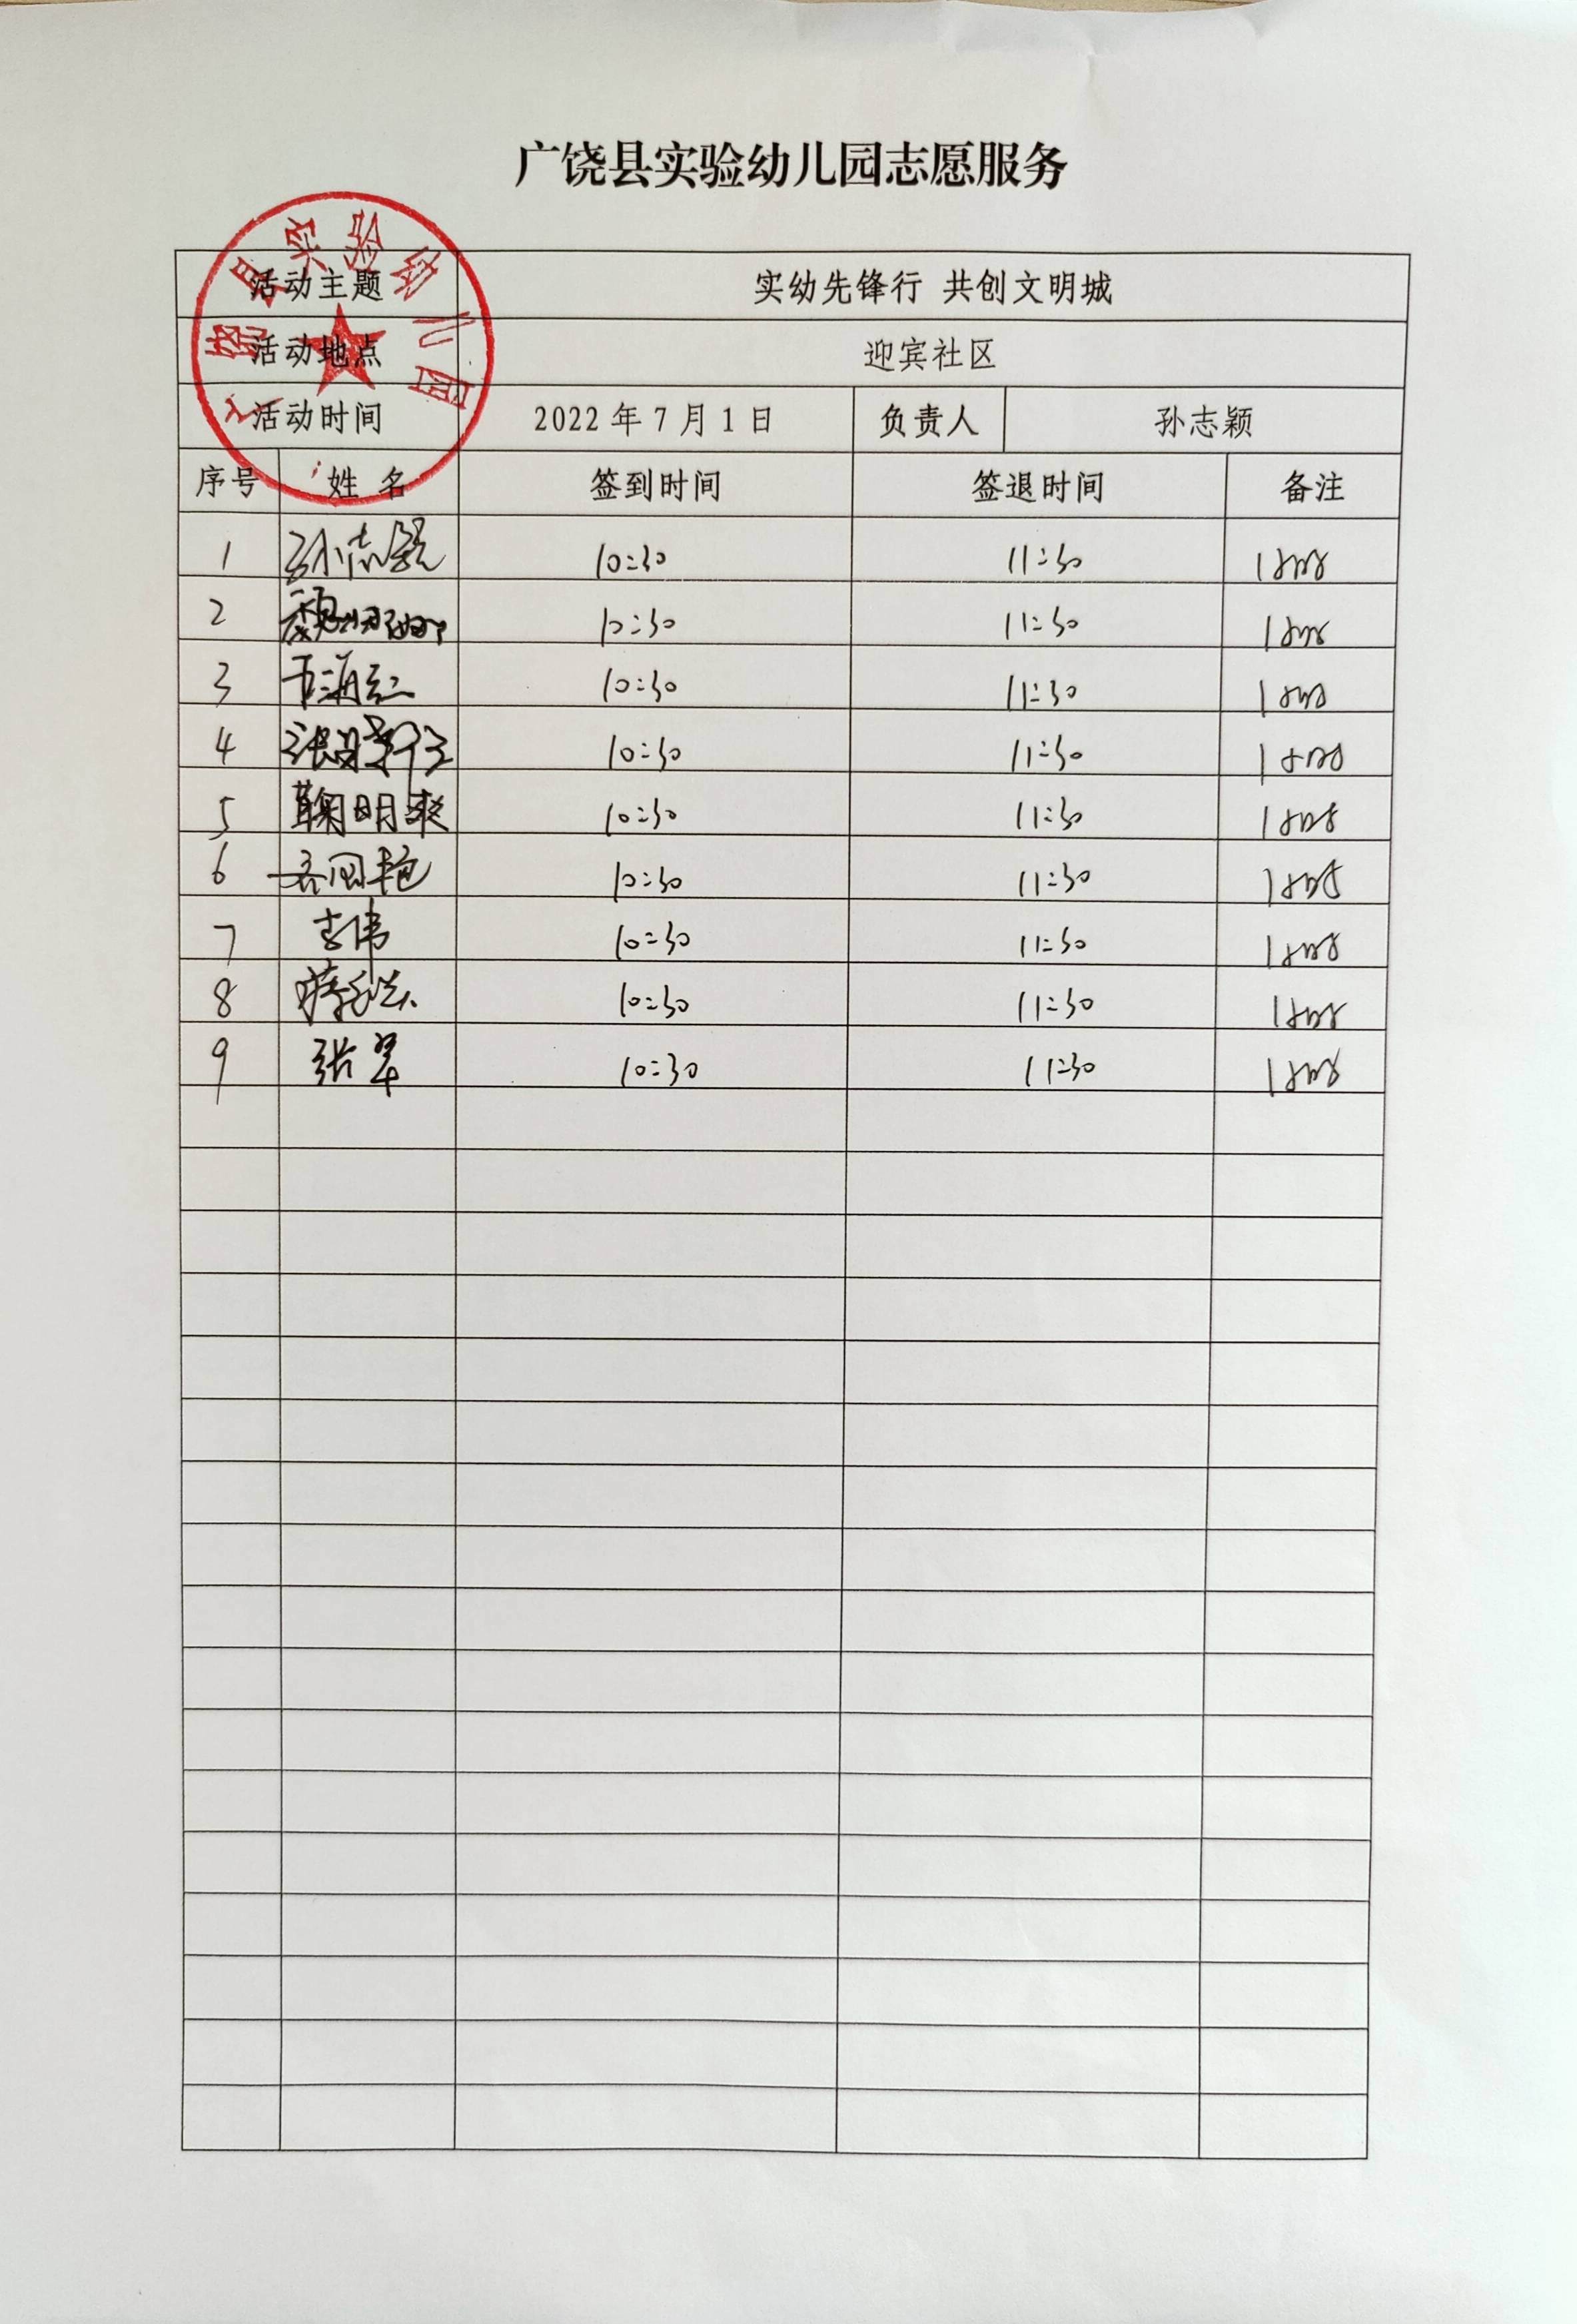 广饶县实验幼儿园志愿服务
广饶县实验幼儿园
活动主题 实幼先锋行 共创文明城
活动地点 迎宾社区
活动时间 2022年7月1日 负责人 孙志颖
序号 姓名 签到时间 签退时间 备注
1 孙志颖 10:30 11:30 1小时
2 10:30 11:30 1小时
3 10:30 11:30 1小时
4 10:30 11:30 1小时
5 鞠明爽 10:30 11:30 1小时
6 10:30 11:30 1小时
7 李伟 10:30 11:30 1小时
8 10:30 11:30 1小时
9 张翠 10:30 11:30 1小时